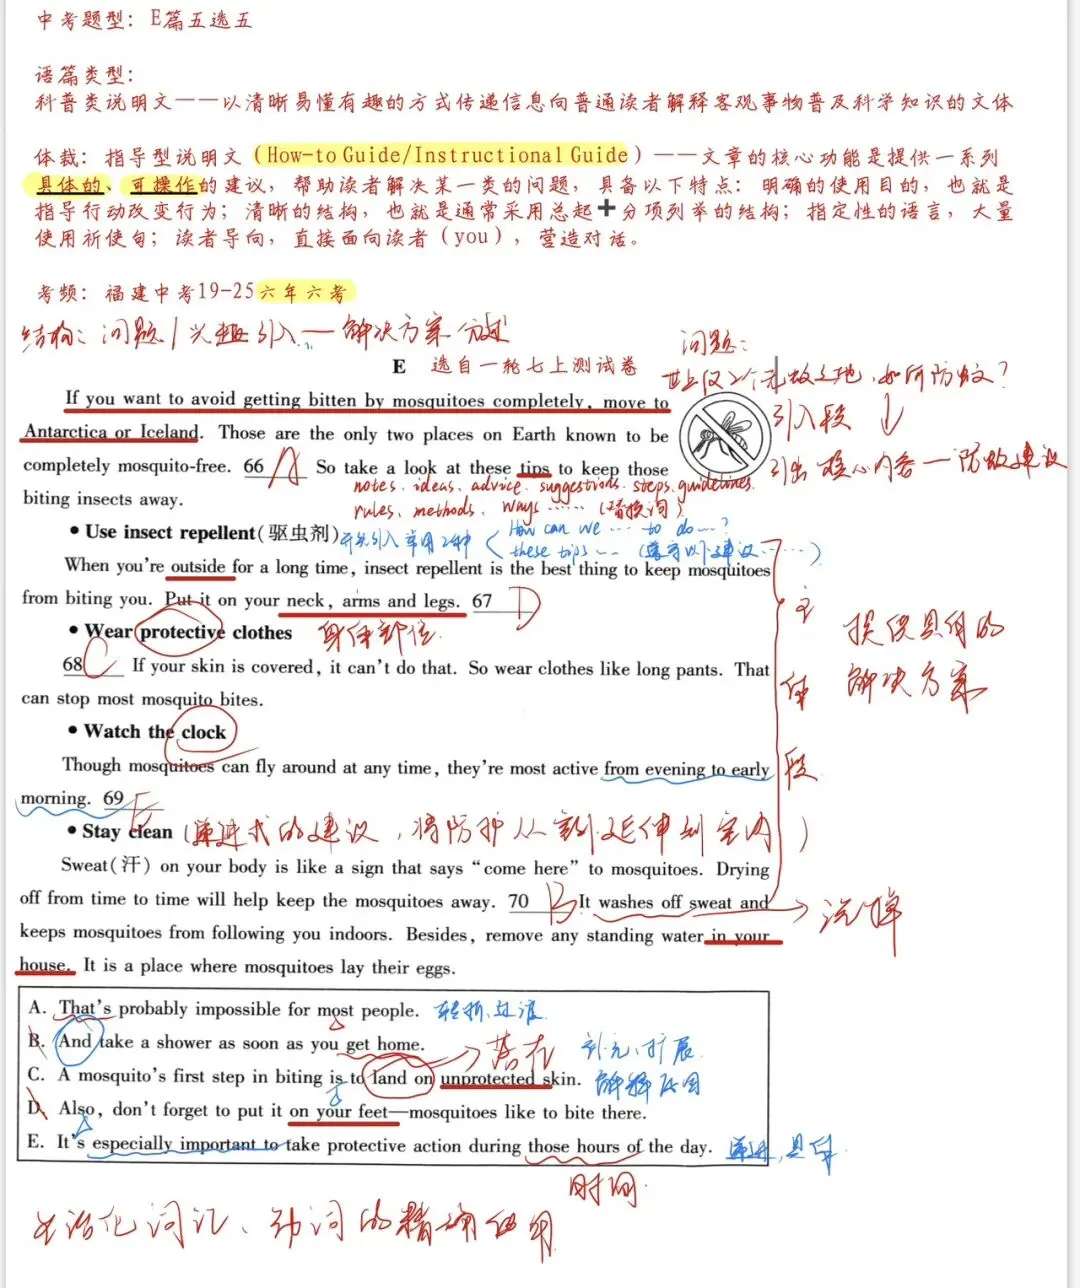 中考题型：E篇五选五
语篇类型：
科普类说明文——以清晰易懂有趣的方式传递信息向普通读者解释客观事物普及科学知识的文体
体裁：指导型说明文（How-to Guide/Instructional Guide）——文章的核心功能是提供一系列
具体的、可操作的建议，帮助读者解决某一类的问题，具备以下特点：明确的使用目的，也就是
指导行动改变行为；清晰的结构，也就是通常采用总起+分项列举的结构；指定性的语言，大量
使用祈使句；读者导向，直接面向读者（you），营造对话。
考频：福建中考19-25六年六考
结构：问题/兴趣引入——解决方案分述
问题：
E 选自一轮七上测试卷
世上仅2个无蚊之地，如何防蚊？
If you want to avoid getting bitten by mosquitoes completely, move to
引入段 ↓
Antarctica or Iceland. Those are the only two places on Earth known to be
引出核心内容—防蚊建议
completely mosquito-free. 66 A So take a look at these tips to keep those
notes. ideas. advice. suggestions. steps. guidelines.
biting insects away.
rules. methods. ways …… (替换词)
• Use insect repellent(驱虫剂)
开头引入常用2种
How can we … to do …?
these tips … (遵守以下建议……)
When you're outside for a long time, insect repellent is the best thing to keep mosquitoes
from biting you. Put it on your neck, arms and legs. 67 D
• Wear protective clothes 身体部位
主体段
提供具体的
解决方案
68 C If your skin is covered, it can't do that. So wear clothes like long pants. That
can stop most mosquito bites.
• Watch the clock
Though mosquitoes can fly around at any time, they're most active from evening to early
morning. 69 E
• Stay clean (递进式的建议，将防护从室外延伸到室内)
Sweat(汗) on your body is like a sign that says “come here” to mosquitoes. Drying
off from time to time will help keep the mosquitoes away. 70 B It washes off sweat and → 洗掉
keeps mosquitoes from following you indoors. Besides, remove any standing water in your
house. It is a place where mosquitoes lay their eggs.
A. That's probably impossible for most people. 转折、过渡
B. And take a shower as soon as you get home. → 落在 补充、扩展
C. A mosquito's first step in biting is to land on unprotected skin. 解释原因
D. Also, don't forget to put it on your feet—mosquitoes like to bite there.
E. It's especially important to take protective action during those hours of the day. 递进，具体
时间
生活化词汇、动词的精确使用